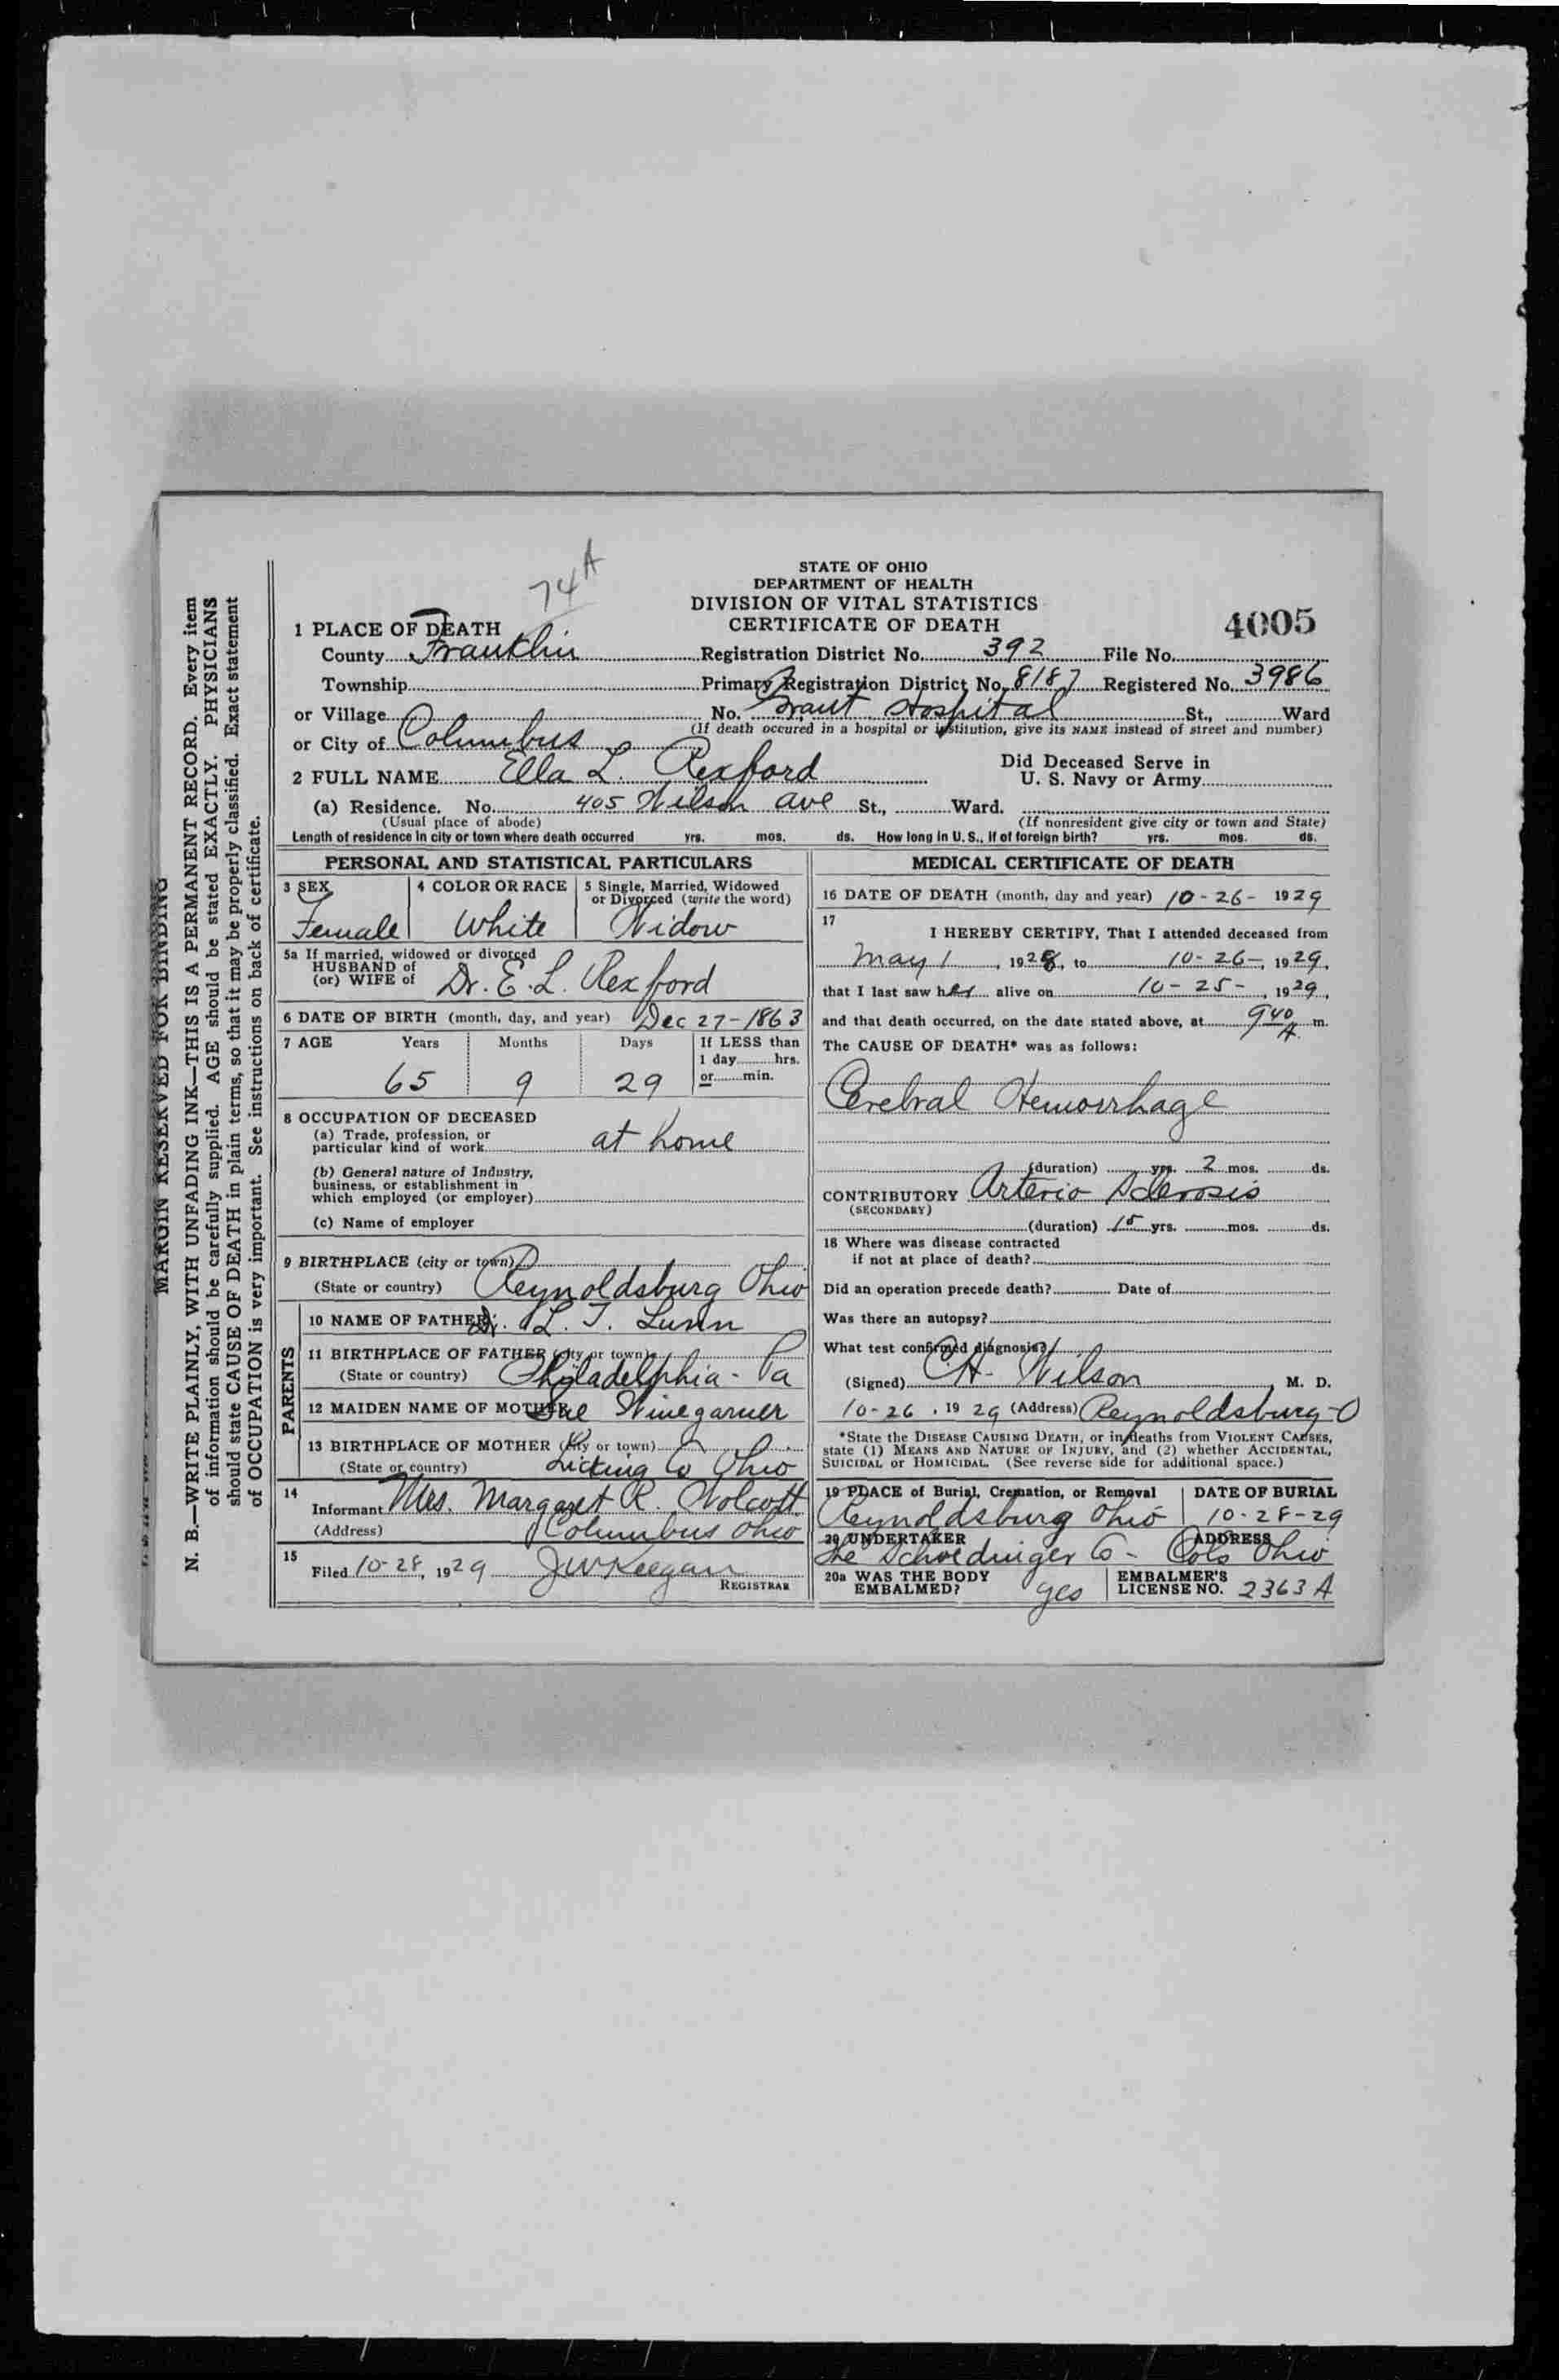 74 A
STATE OF OHIO
DEPARTMENT OF HEALTH
DIVISION OF VITAL STATISTICS
CERTIFICATE OF DEATH
4005
1 PLACE OF DEATH
County Franklin Registration District No. 392 File No.
Township Primary Registration District No. 8187 Registered No. 3986
or Village No. Grant Hospital St., Ward
(If death occured in a hospital or institution, give its NAME instead of street and number)
or City of Columbus
2 FULL NAME Ella L. Rexford Did Deceased Serve in U. S. Navy or Army
(a) Residence. No. 405 Wilson Ave St., Ward.
(Usual place of abode) (If nonresident give city or town and State)
Length of residence in city or town where death occurred yrs. mos. ds. How long in U. S., if of foreign birth? yrs. mos. ds.
PERSONAL AND STATISTICAL PARTICULARS
3 SEX
Female
4 COLOR OR RACE
White
5 Single, Married, Widowed
or Divorced (write the word)
Widow
5a If married, widowed or divorced
HUSBAND of
(or) WIFE of Dr. E. L. Rexford
6 DATE OF BIRTH (month, day, and year) Dec 27-1863
7 AGE Years Months Days If LESS than
1 day hrs.
or min.
65 9 29
8 OCCUPATION OF DECEASED
(a) Trade, profession, or
particular kind of work at home
(b) General nature of Industry,
business, or establishment in
which employed (or employer)
(c) Name of employer
9 BIRTHPLACE (city or town)
(State or country) Reynoldsburg Ohio
PARENTS
10 NAME OF FATHER Dr. L. T. Lunn
11 BIRTHPLACE OF FATHER (city or town)
(State or country) Philadelphia - Pa
12 MAIDEN NAME OF MOTHER Sue Winegarner
13 BIRTHPLACE OF MOTHER (city or town)
(State or country) Licking Co Ohio
14
Informant Mrs. Margaret R. Wolcott
(Address) Columbus Ohio
15
Filed 10-28, 1929 J W Keegan
REGISTRAR
MEDICAL CERTIFICATE OF DEATH
16 DATE OF DEATH (month, day and year) 10-26- 1929
17
I HEREBY CERTIFY, That I attended deceased from
May 1, 1928, to 10-26-, 1929,
that I last saw her alive on 10-25-, 1929,
and that death occurred, on the date stated above, at 9 40 A. m.
The CAUSE OF DEATH* was as follows:
Cerebral Hemorrhage
(duration) yrs. 2 mos. ds.
CONTRIBUTORY Arterio Sclerosis
(SECONDARY)
(duration) 15 yrs. mos. ds.
18 Where was disease contracted
if not at place of death?
Did an operation precede death? Date of
Was there an autopsy?
What test confirmed diagnosis?
(Signed) C H. Wilson, M. D.
10-26, 1929 (Address) Reynoldsburg-O
*State the DISEASE CAUSING DEATH, or in deaths from VIOLENT CAUSES,
state (1) MEANS AND NATURE OF INJURY, and (2) whether ACCIDENTAL,
SUICIDAL or HOMICIDAL. (See reverse side for additional space.)
19 PLACE of Burial, Cremation, or Removal DATE OF BURIAL
Reynoldsburg Ohio 10-28-29
20 UNDERTAKER ADDRESS
The Schoedinger Co - Cols Ohio
20a WAS THE BODY
EMBALMED? yes
EMBALMER'S
LICENSE NO. 2363 A
MARGIN RESERVED FOR BINDING
N. B.—WRITE PLAINLY, WITH UNFADING INK—THIS IS A PERMANENT RECORD. Every item
of information should be carefully supplied. AGE should be stated EXACTLY. PHYSICIANS
should state CAUSE OF DEATH in plain terms, so that it may be properly classified. Exact statement
of OCCUPATION is very important. See instructions on back of certificate.